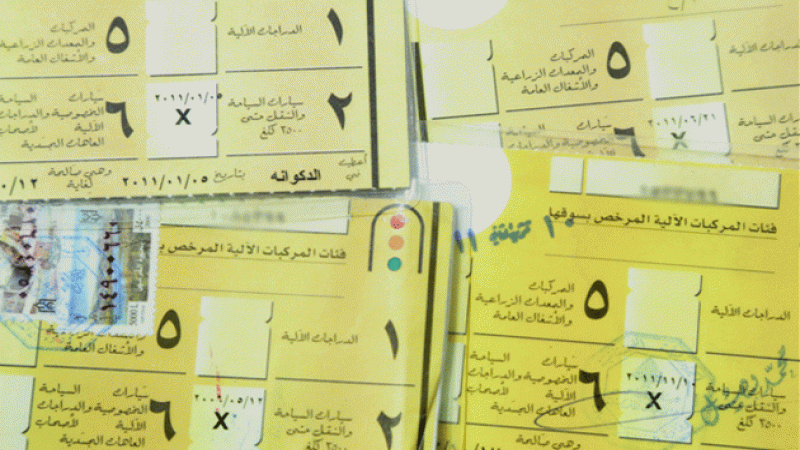 ١
الدراجات الآلية
٥
المركبات
والمعدات الزراعية
والأشغال العامة
٢
سيارات السياحة
والنقل حتى
٢٥٠٠ كلغ
٢٠١١/٠١/٠٥
X
٦
سيارات السياحة
الخصوصية والدراجات
الآلية لأصحاب
العاهات الجسدية
أعطيت
في
الدكوانه
بتاريخ
٢٠١١/٠١/٠٥
وهي صالحة
لغاية
٠/١٢
الدراجات الآلية
٥
المركبات
والمعدات الزراعية
والأشغال العامة
سيارات السياحة
والنقل حتى
٢٥٠٠ كلغ
٢٠١١/٠٦/٢١
X
٦
سيارات السياحة
الخصوصية والدراجات
فئات المركبات الآلية المرخص بسوقها
١
الدراجات الآلية
٥
والمعدات الزراعية
والأشغال العامة
٢
سيارات السياحة
والنقل حتى
٢٥٠٠ كلغ
X
٦
سيارات السياحة
الخصوصية والدراجات
الآلية لأصحاب
العاهات الجسدية
5000 L
فئات المركبات الآلية المرخص بسوقها
الدراجات الآلية
٥
المركبات
والمعدات الزراعية
والأشغال العامة
سيارات السياحة
والنقل حتى
٢٥٠٠ كلغ
٢٠١١/١١/١٠
X
٦
سيارات السياحة
الخصوصية والدراجات
الآلية لأصحاب
العاهات الجسدية
وهي صالحة